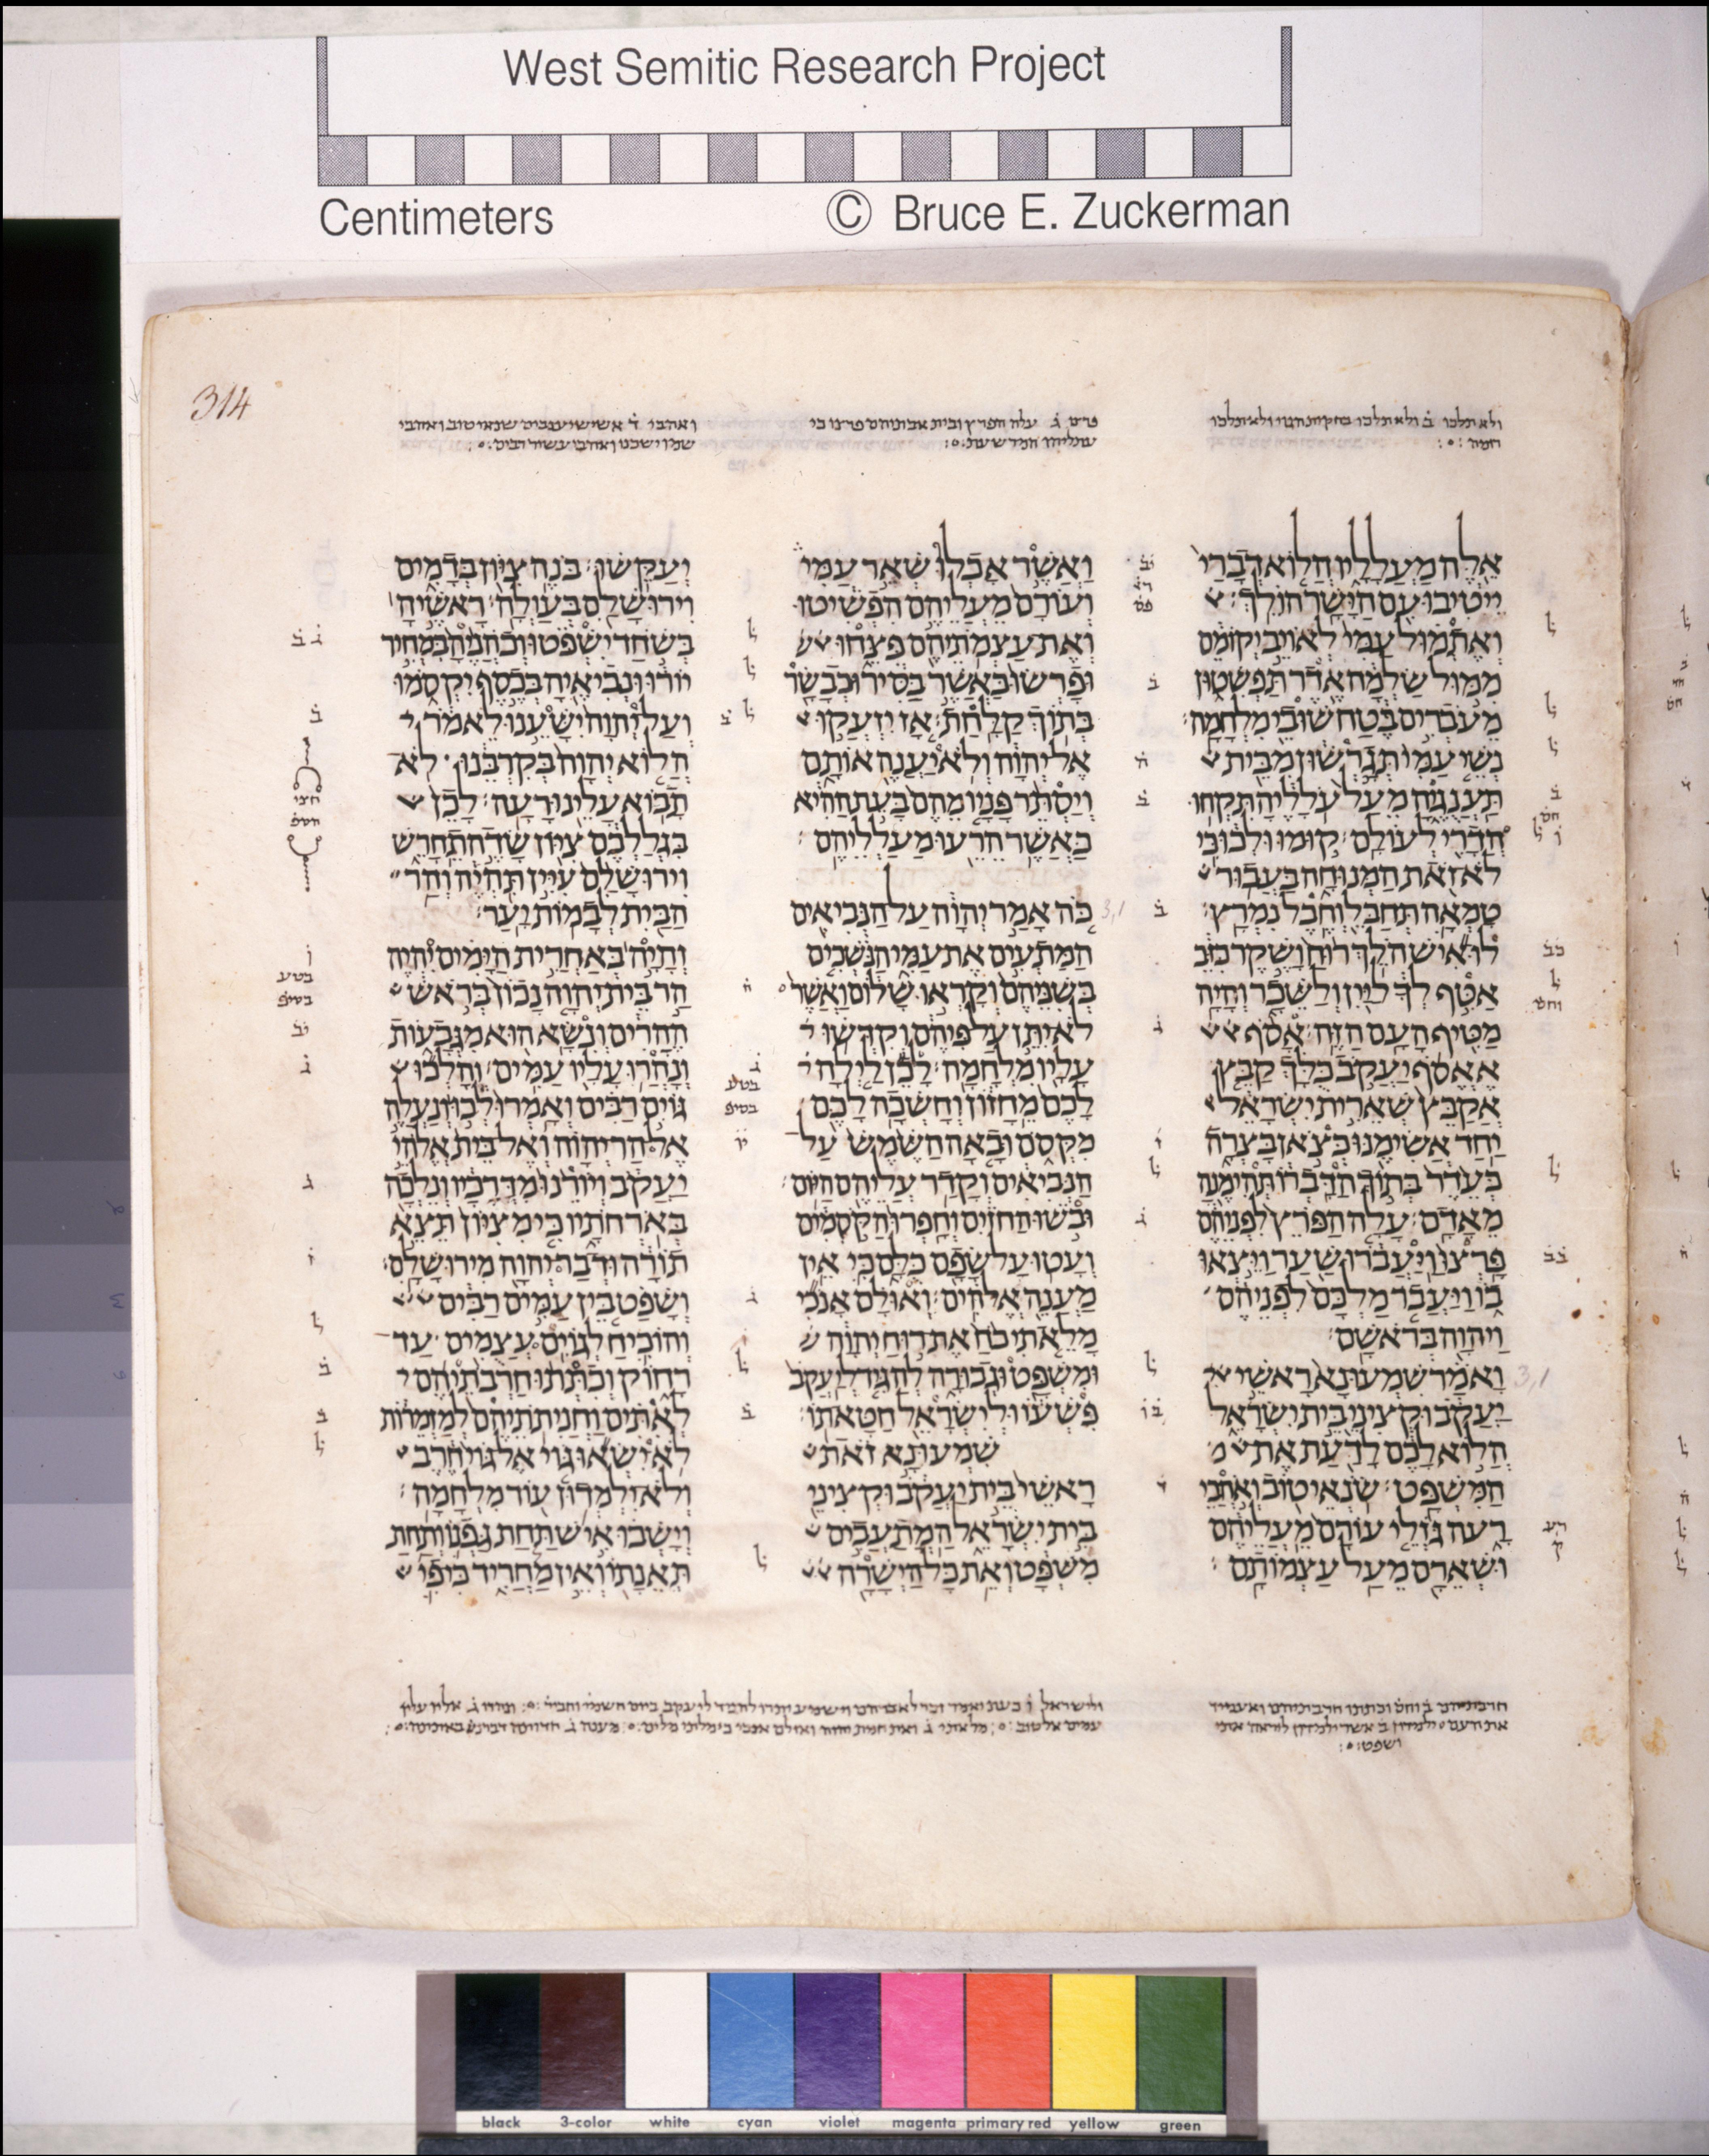 West Semitic Research Project
Centimeters © Bruce E. Zuckerman
314
ולא תלכו ב ולא תלכו בחקות הגוי ולא תלכו
רומה
פרץ ג עלה הפרץ
ואהבי
אֵלֶּה מַעֲלָלָיו הֲלוֹא דְבָרַי
יֵיטִיבוּ עִם הַיָּשָׁר הוֹלֵךְ׃
וְאֶתְמוּל עַמִּי לְאוֹיֵב יְקוֹמֵם
מִמּוּל שַׂלְמָה אֶדֶר תַּפְשִׁטוּן
מֵעֹבְרִים בֶּטַח שׁוּבֵי מִלְחָמָה׃
נְשֵׁי עַמִּי תְּגָרְשׁוּן מִבֵּית
תַּעֲנֻגֶיהָ מֵעַל עֹלָלֶיהָ תִּקְחוּ
הֲדָרִי לְעוֹלָם׃ קוּמוּ וּלְכוּ כִּי
לֹא זֹאת הַמְּנוּחָה בַּעֲבוּר
טָמְאָה תְּחַבֵּל וְחֶבֶל נִמְרָץ׃
לוּ אִישׁ הֹלֵךְ רוּחַ וָשֶׁקֶר כִּזֵּב
אַטִּף לְךָ לַיַּיִן וְלַשֵּׁכָר וְהָיָה
מַטִּיף הָעָם הַזֶּה׃ אָסֹף
אֶאֱסֹף יַעֲקֹב כֻּלָּךְ קַבֵּץ
אֲקַבֵּץ שְׁאֵרִית יִשְׂרָאֵל
יַחַד אֲשִׂימֶנּוּ כְּצֹאן בָּצְרָה
כְּעֵדֶר בְּתוֹךְ הַדָּבְרוֹ תְּהִימֶנָה
מֵאָדָם׃ עָלָה הַפֹּרֵץ לִפְנֵיהֶם
פָּרְצוּ וַיַּעֲבֹרוּ שַׁעַר וַיֵּצְאוּ
בוֹ וַיַּעֲבֹר מַלְכָּם לִפְנֵיהֶם
וַיהוָה בְּרֹאשָׁם׃
וָאֹמַר שִׁמְעוּ נָא רָאשֵׁי
יַעֲקֹב וּקְצִינֵי בֵּית יִשְׂרָאֵל
הֲלוֹא לָכֶם לָדַעַת אֶת
הַמִּשְׁפָּט׃ שֹׂנְאֵי טוֹב וְאֹהֲבֵי
רָעָה גֹּזְלֵי עוֹרָם מֵעֲלֵיהֶם
וּשְׁאֵרָם מֵעַל עַצְמוֹתָם׃
וַאֲשֶׁר אָכְלוּ שְׁאֵר עַמִּי
וְעוֹרָם מֵעֲלֵיהֶם הִפְשִׁיטוּ
וְאֶת עַצְמֹתֵיהֶם פִּצֵּחוּ
וּפָרְשׂוּ כַּאֲשֶׁר בַּסִּיר וּכְבָשָׂר
בְּתוֹךְ קַלָּחַת׃ אָז יִזְעֲקוּ
אֶל יְהוָה וְלֹא יַעֲנֶה אוֹתָם
וְיַסְתֵּר פָּנָיו מֵהֶם בָּעֵת הַהִיא
כַּאֲשֶׁר הֵרֵעוּ מַעַלְלֵיהֶם׃
כֹּה אָמַר יְהוָה עַל הַנְּבִיאִים
הַמַּתְעִים אֶת עַמִּי הַנֹּשְׁכִים
בְּשִׁנֵּיהֶם וְקָרְאוּ שָׁלוֹם וַאֲשֶׁר
לֹא יִתֵּן עַל פִּיהֶם וְקִדְּשׁוּ
עָלָיו מִלְחָמָה׃ לָכֵן לַיְלָה
לָכֶם מֵחָזוֹן וְחָשְׁכָה לָכֶם
מִקְּסֹם וּבָאָה הַשֶּׁמֶשׁ עַל
הַנְּבִיאִים וְקָדַר עֲלֵיהֶם הַיּוֹם׃
וּבֹשׁוּ הַחֹזִים וְחָפְרוּ הַקֹּסְמִים
וְעָטוּ עַל שָׂפָם כֻּלָּם כִּי אֵין
מַעֲנֵה אֱלֹהִים׃ וְאוּלָם אָנֹכִי
מָלֵאתִי כֹחַ אֶת רוּחַ יְהוָה
וּמִשְׁפָּט וּגְבוּרָה לְהַגִּיד לְיַעֲקֹב
פִּשְׁעוֹ וּלְיִשְׂרָאֵל חַטָּאתוֹ׃
שִׁמְעוּ נָא זֹאת
רָאשֵׁי בֵּית יַעֲקֹב וּקְצִינֵי
בֵּית יִשְׂרָאֵל הַמֲתַעֲבִים
מִשְׁפָּט וְאֵת כָּל הַיְשָׁרָה
יְעַקֵּשׁוּ׃ בֹּנֶה צִיּוֹן בְּדָמִים
וִירוּשָׁלִַם בְּעַוְלָה׃ רָאשֶׁיהָ
בְּשֹׁחַד יִשְׁפֹּטוּ וְכֹהֲנֶיהָ בִּמְחִיר
יוֹרוּ וּנְבִיאֶיהָ בְּכֶסֶף יִקְסֹמוּ
וְעַל יְהוָה יִשָּׁעֵנוּ לֵאמֹר
הֲלוֹא יְהוָה בְּקִרְבֵּנוּ לֹא
תָבוֹא עָלֵינוּ רָעָה׃ לָכֵן
בִּגְלַלְכֶם צִיּוֹן שָׂדֶה תֵחָרֵשׁ
וִירוּשָׁלִַם עִיִּין תִּהְיֶה וְהַר
הַבַּיִת לְבָמוֹת יָעַר׃
וְהָיָה בְּאַחֲרִית הַיָּמִים יִהְיֶה
הַר בֵּית יְהוָה נָכוֹן בְּרֹאשׁ
הֶהָרִים וְנִשָּׂא הוּא מִגְּבָעוֹת
וְנָהֲרוּ עָלָיו עַמִּים׃ וְהָלְכוּ
גּוֹיִם רַבִּים וְאָמְרוּ לְכוּ וְנַעֲלֶה
אֶל הַר יְהוָה וְאֶל בֵּית אֱלֹהֵי
יַעֲקֹב וְיוֹרֵנוּ מִדְּרָכָיו וְנֵלְכָה
בְּאֹרְחֹתָיו כִּי מִצִּיּוֹן תֵּצֵא
תוֹרָה וּדְבַר יְהוָה מִירוּשָׁלִָם׃
וְשָׁפַט בֵּין עַמִּים רַבִּים
וְהוֹכִיחַ לְגוֹיִם עֲצֻמִים עַד
רָחוֹק וְכִתְּתוּ חַרְבֹתֵיהֶם
לְאִתִּים וַחֲנִיתֹתֵיהֶם לְמַזְמֵרוֹת
לֹא יִשְׂאוּ גּוֹי אֶל גּוֹי חֶרֶב
וְלֹא יִלְמְדוּן עוֹד מִלְחָמָה׃
וְיָשְׁבוּ אִישׁ תַּחַת גַּפְנוֹ וְתַחַת
תְּאֵנָתוֹ וְאֵין מַחֲרִיד כִּי פִי
black 3-color white cyan violet magenta primary red yellow green